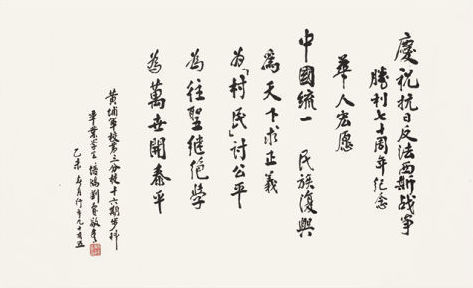 慶祝抗日反法西斯战争
勝利七十周年纪念
華人宏愿
中國統一 民族復興
為天下求正義
为「村民」討公平
為往聖继绝学
為萬世開泰平
黄埔軍校第三分校十六期步科
畢業学生 劉
乙未 月 行年九十有五